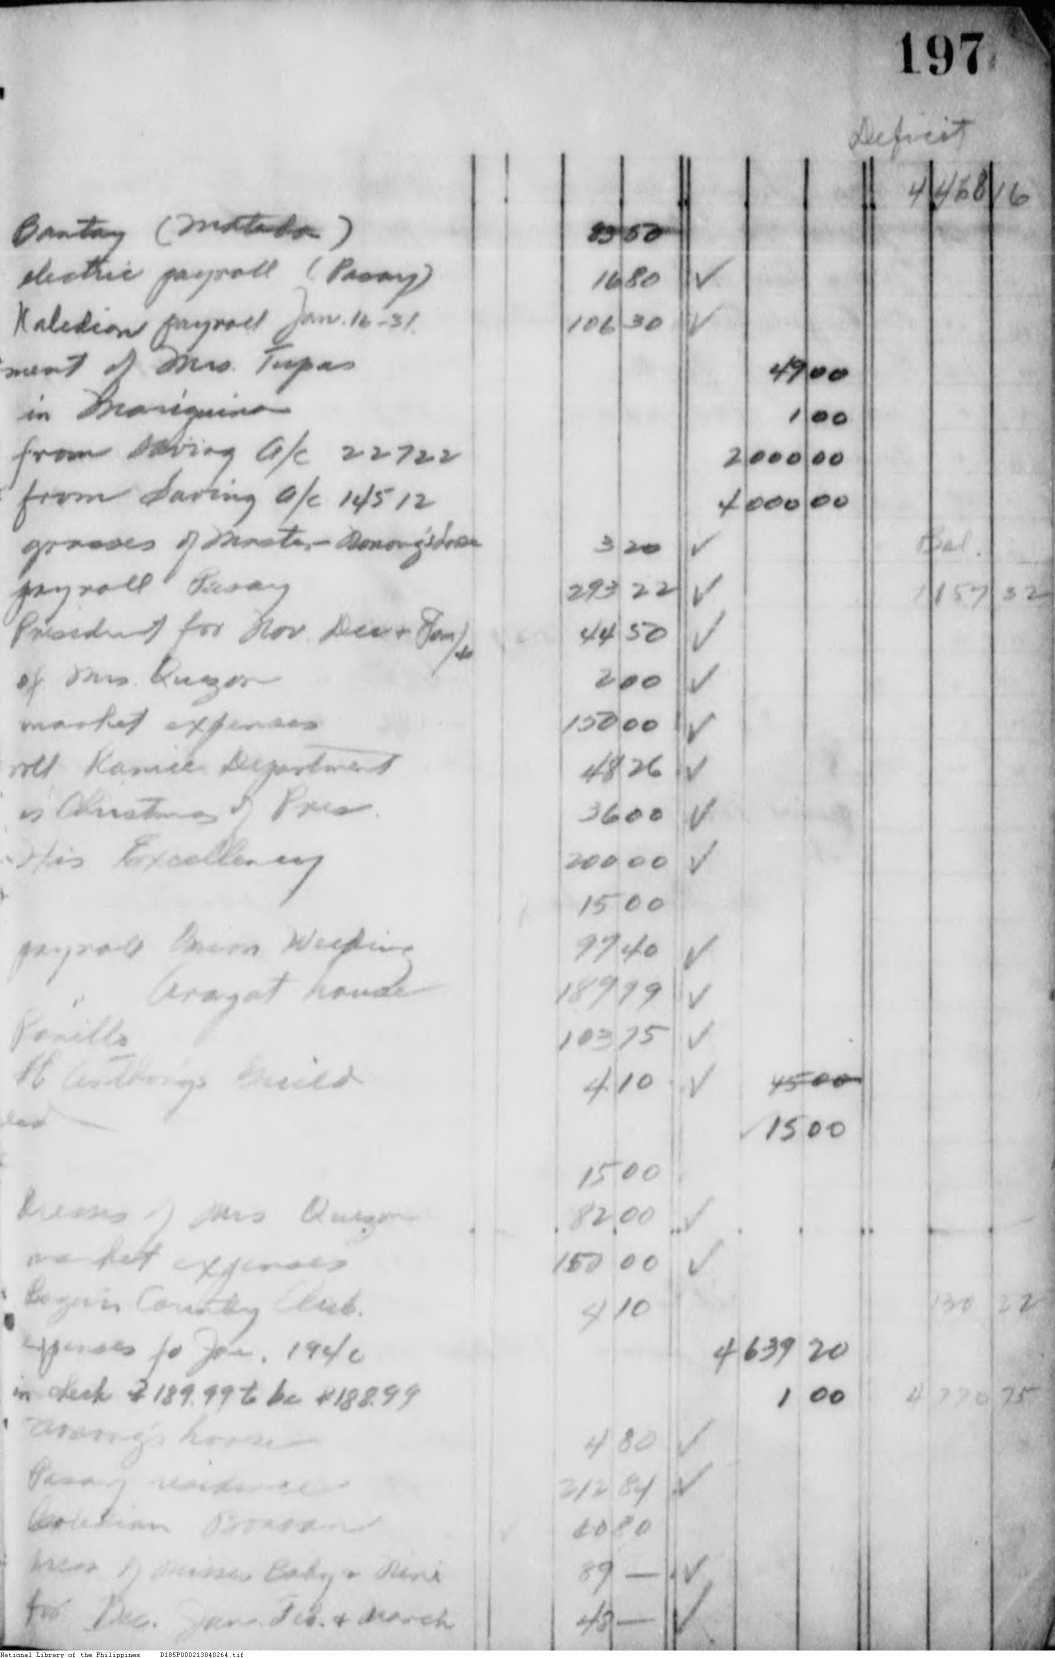 197
Deficit
4 468 16
Bantay (                ) 83 50
electric payroll (Pasay) 16 80 ✓
Kaledian payroll Jan. 16-31. 106 30 ✓
ment of Mrs. Tupas 49 00
in Mariquina 1 00
from Saving A/c 22722 2000 00
from Saving A/c 14512 4000 00
grasses of house 3 20 ✓ Bal.
payroll Pasay 293 22 ✓ 1157 32
President for Nov. Dec + Jan/40 44 50 ✓
of Mrs. Quezon 2 00 ✓
market expenses 150 00 ✓
roll Ramie Department 48 26 ✓
is Christmas of Pres. 36 00 ✓
His Excellency 200 00 ✓
15 00
payroll Weeding 97 40 ✓
" Arayat house 189 99 ✓
103 75 ✓
St Anthony's Guild 4 10 ✓ 45 00
✓ 15 00
15 00
Dresses of Mrs Quezon 82 00 ✓
market expenses 150 00 ✓
Country Club. 4 10 130 22
expenses fo Jan. 1940 4 639 20
in check ₱189.99 to be ₱188.99 1 00 4 770 75
house 4 80 ✓
Pasay residence 212 84 ✓
80
dress of Misses Baby + Nini 89 — ✓
for Dec. Jan. Feb. + March 48 — ✓
National Library of the Philippines D185P000213040264.tif